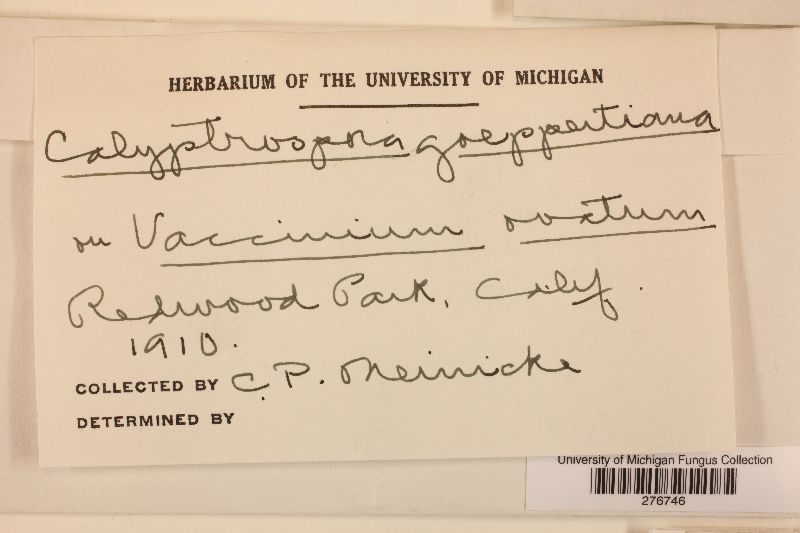 HERBARIUM OF THE UNIVERSITY OF MICHIGAN
Calyptrospora goeppertiana
on Vaccinium ovatum
Redwood Park, Calif.
1910.
COLLECTED BY C. P. Meinicke
DETERMINED BY
University of Michigan Fungus Collection
276746